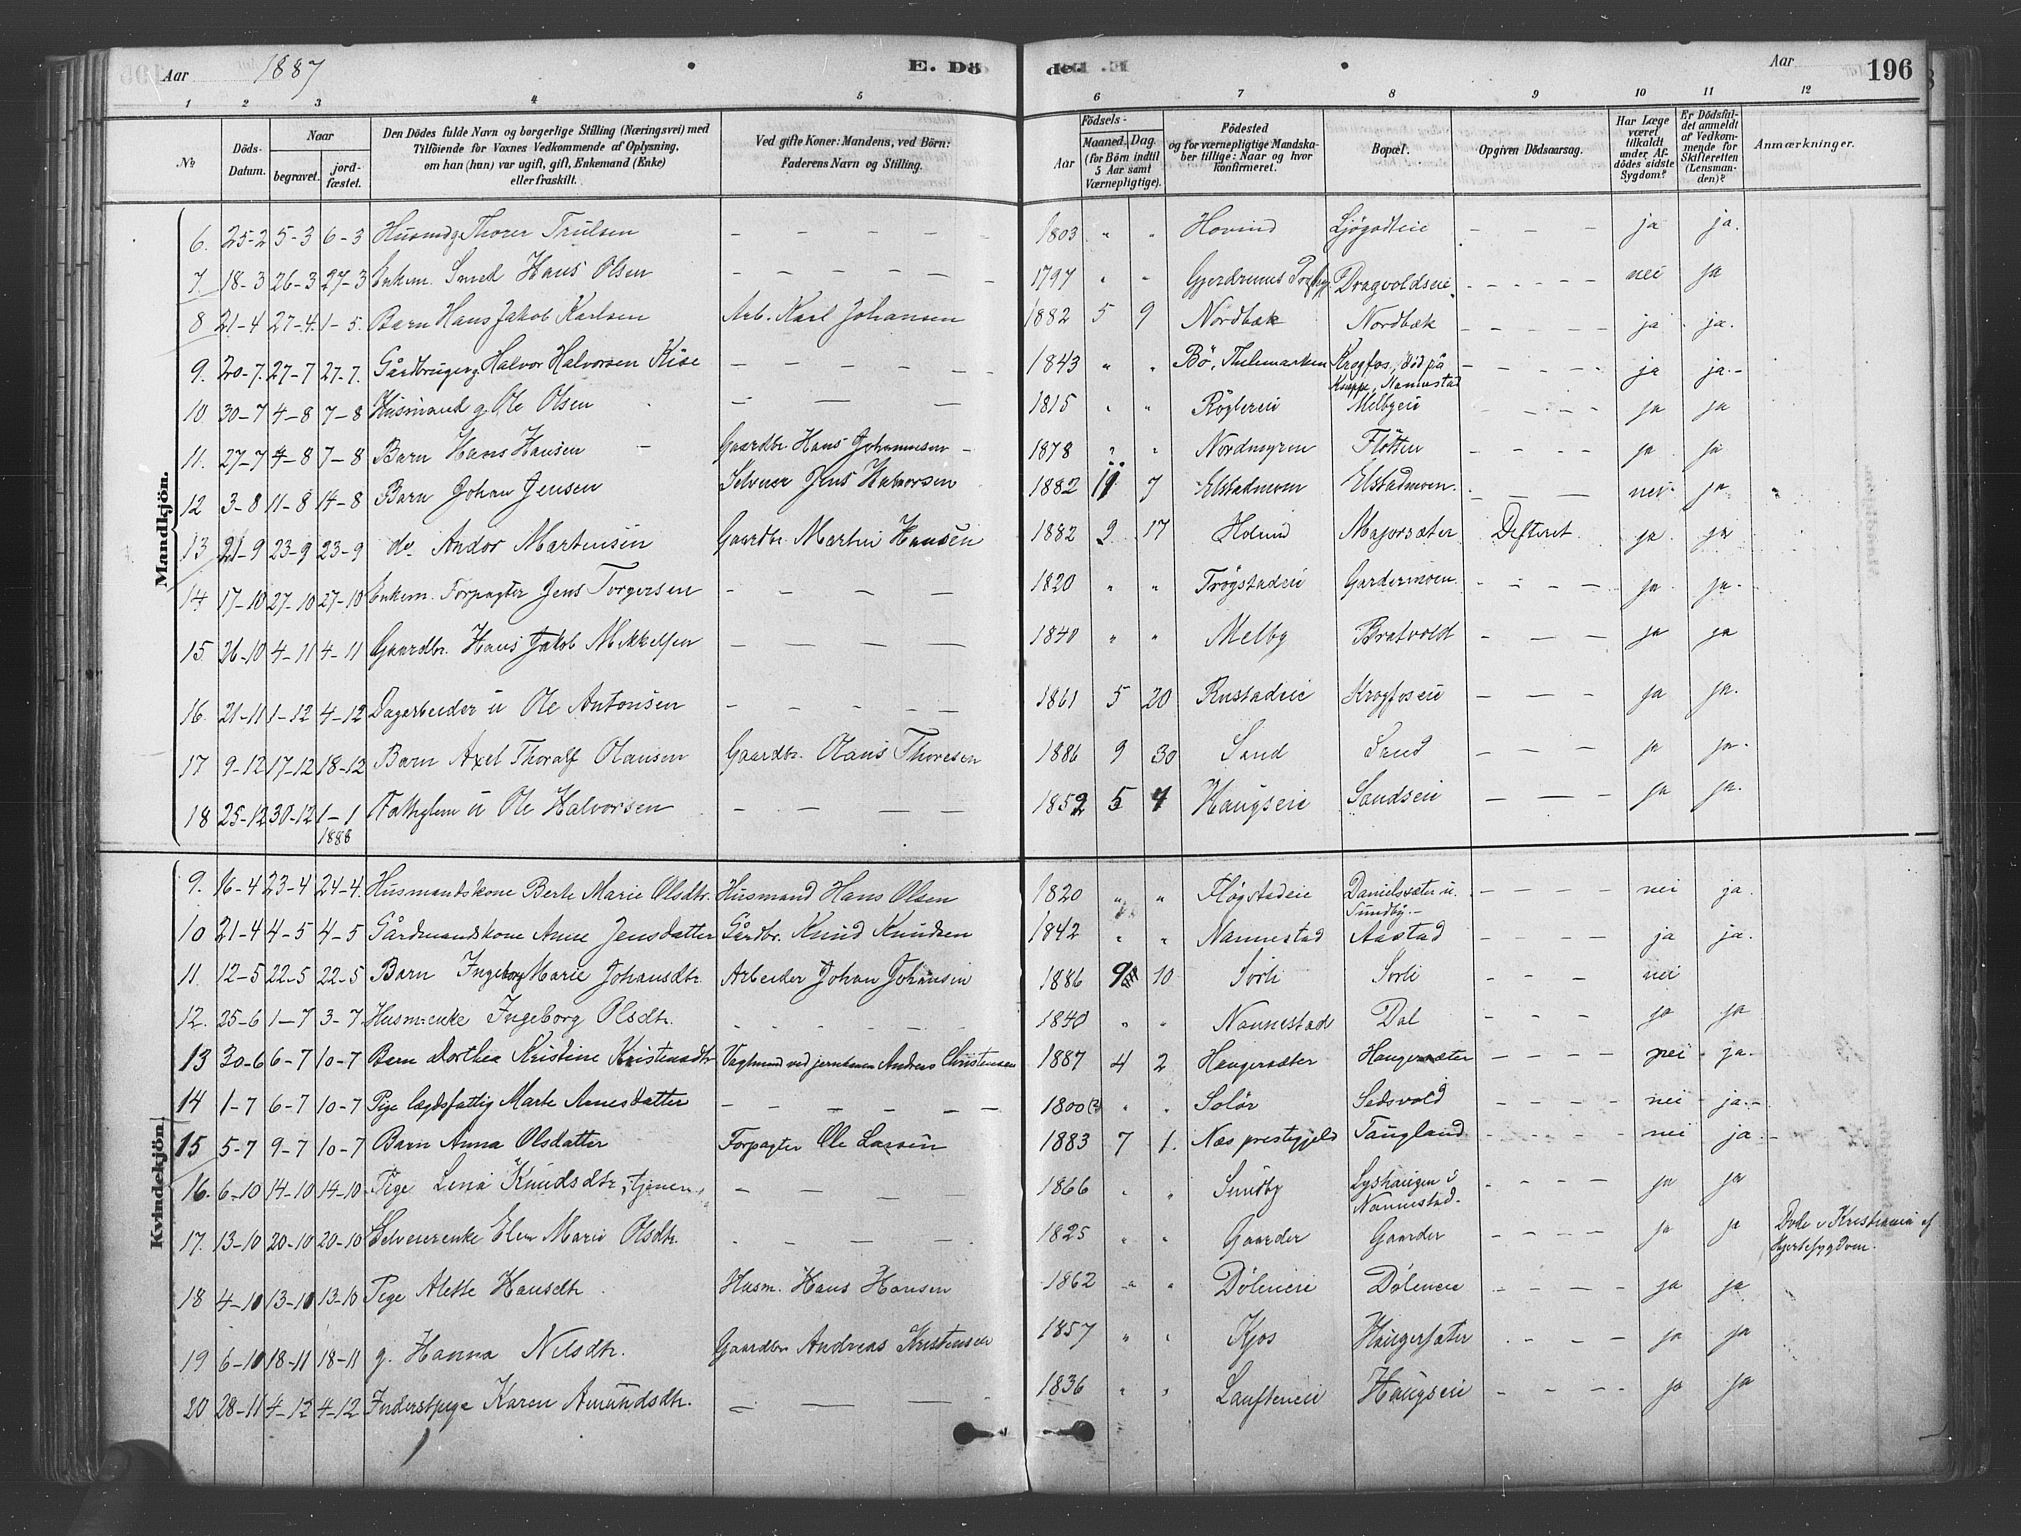 Aar 1887 E. Dö de. Aar 196
1 2 3 4 5 6 7 8 9 10 11 12
No
Döds-Datum.
Naar
begravet.
jord-fæstet.
Den Dödes fulde Navn og borgerlige Stilling (Næringsvei) med
Tilföiende for Voxnes Vedkommende af Oplysning,
om han (hun) var ugift, gift, Enkemand (Enke)
eller fraskilt.
Ved gifte Koner: Mandens, ved Börn:
Faderens Navn og Stilling.
Födsels-
Aar
Maaned. Dag.
(for Börn indtil
5 Aar samt
Værnepligtige).
Födested
og for værnepligtige Mandska-
ber tillige: Naar og hvor
konfirmeret.
Bopæl.
Opgiven Dödsaarsag.
Har Læge
været
tilkaldt
under Af-
dödes sidste
Sygdom?
Er Dödsfal-
det anmeldt
af Vedkom-
mende for
Skifteretten
(Lensman-
den)?
Anmærkninger.
Mandkjön.
6. 25-2 5-3 6-3 Husmd g Thorer Trulsen — — — — — 1803 " " Hovind Ljøgodteie - - - ja ja.
7. 18-3 26-3 27-3 Enkem. Smed Hans Olsen — — — — — 1797 " " Gjerdrums Dragvoldseie - - - - - nei ja
8 21-4 27-4 1-5. Barn Hans Jakob Karlsen Arb. Karl Johansen 1882 5 9 Nordbæk Nordbæk - - - - - ja ja.
9. 20-7. 27-7 27-7. Gårdbruger g. Halvor Halvorsen Kise — — — — — 1843 " " Bö, Thelemarken Krogfos, död på - - - - ja ja.-
Knappe, Nannestad
10 30-7 4-8 7-8 Husmand g. Ole Olsen — — — 1815 " " Röglereie Melbyeie - - - - ja ja
11. 27-7 4-8 7-8 Barn Hans Hansen - Gaardbr. Hans Johannesen - 1878 " " Nordmyren Flötten - - - - ja ja
12 3-8 11-8 14-8 Barn Johan Jensen Selveier Jens Halvorsen 1882 11 7 Elstadmoen Elstadmoen. - - - nei ja
13 21-9 23-9 23-9 do. Andor Martinsen Gaardbr. Martin Hansen 1882 9 17 Holund Majorsæter Difterit ja ja
14 17-10 27-10 27-10 Enkem. Forpagter Jens Torgersen — — — — 1820 " " Trögstadeie Gardermoen. - - - - ja ja.
15. 26-10 4-11 4-11 Gaardbr. Hans Jakob Mikkelsen — — — — 1840 " " Melby Bratvold - - - ja ja
16. 21-11 1-12 4-12 Dagarbeider u Ole Antonsen — — — — — 1861 5 20 Rustadeie Krogfoseie - - - ja ja.
17 9-12 17-12 18-12 Barn Axel Thoralf Olausen Gaardbr. Olaus Thoresen 1886 9 30 Sand Sand - - - ja ja.
18 25-12 30-12 1-1 Fattiglem u Ole Halvorsen — — — — 1852 5 4 Haugseie Sandseie - - - ja ja.
1888
Kvindekjön.
9. 16-4 23-4 24-4. Husmandskone Berte Marie Olsdtr. Husmand Hans Olsen 1820 " " Flögstadeie Danielsæter u. - - - - nei ja.
Sundby.-
10 21-4 4-5 4-5 Gårdmandskone Anne Jensdatter Gårdbr. Knud Knudsen 1842 " " Nannestad Aastad - - - - ja ja.
11. 12-5 22-5 22-5 Barn Ingeborg Marie Johansdtr. Arbeider Johan Johansen 1886 9 10 Sörli Sörli - - - nei
12. 25-6 1-7 3-7 Husm.enke Ingeborg Olsdtr. - - - - - - 1840 " " Nannestad Dal ja ja
13 30-6 6-7 10-7 Barn Dorthea Kristine Kristensdtr Vagtmand ved jernbanen Andreas Christensen 1887 4 2 Haugersæter Haugersæter - - - - nei ja.
14 1-7 6-7 10-7 Pige lægdsfattig Marte Arnesdatter — — — — — — 1800(?) " " Solör Sedsvold - - - - nei ja.-
15 5-7 9-7 10-7 Barn Anna Olsdatter Forpagter Ole Larsen 1883 7 1. Næs prestegjeld Taugland - - - - nei ja -
16. 6-10 14-10 14-10 Pige Lena Knudsdtr, tjener, — — — — 1866 " " Sundby Lyshaugen i - - - - ja ja
Nannestad.
17. 13-10 20-10 20-10 Selveierenke Elen Marie Olsdtr. - - - - 1825 " " Gaarder Gaarder - - - - ja ja Döde i Kristiania af
Hjertesygdom.
18 4-10 13-10 13-10 Pige Alette Hansdtr. Husm. Hans Hansen 1862 " " Döleneie Döleneie - - - - ja ja
19 6-10 18-11 18-11 g. Hanna Nilsdtr. Gaardbr Andreas Kristensen 1857 " " Kjos Haugersæter - - - - ja ja
20 28-11 4-12 4-12 Inderstpige Karen Amundsdtr. — — — — 1836 " " Haugseie - - - - ja ja